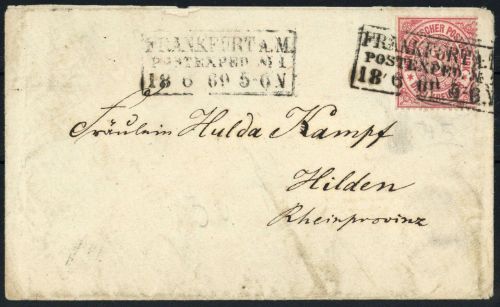 FRANKFURT A.M.
POSTEXPED № 1
18 6 69 5-6 N
FRANKFURT A.M.
POSTEXPED №
18 6 69 5-6 N
Fräulein Hulda Kampf
Hilden
Rheinprovinz